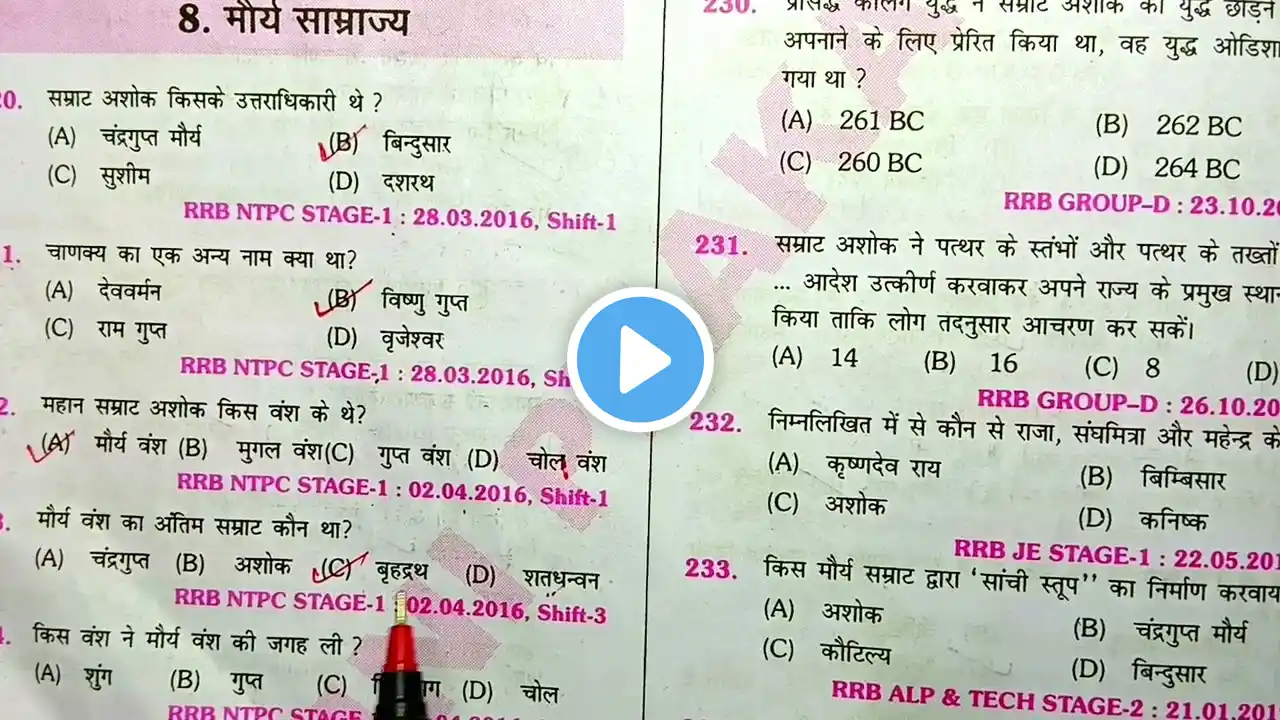 8. मौर्य साम्राज्य
20. सम्राट अशोक किसके उत्तराधिकारी थे ?
(A) चंद्रगुप्त मौर्य (B) बिन्दुसार
(C) सुशीम (D) दशरथ
RRB NTPC STAGE-1 : 28.03.2016, Shift-1
1. चाणक्य का एक अन्य नाम क्या था?
(A) देववर्मन (B) विष्णु गुप्त
(C) राम गुप्त (D) वृजेश्वर
RRB NTPC STAGE-1 : 28.03.2016, Sh
2. महान सम्राट अशोक किस वंश के थे?
(A) मौर्य वंश (B) मुगल वंश(C) गुप्त वंश (D) चोल वंश
RRB NTPC STAGE-1 : 02.04.2016, Shift-1
3. मौर्य वंश का अंतिम सम्राट कौन था?
(A) चंद्रगुप्त (B) अशोक (C) बृहद्रथ (D) शतधन्वन
RRB NTPC STAGE-1 : 02.04.2016, Shift-3
4. किस वंश ने मौर्य वंश की जगह ली ?
(A) शुंग (B) गुप्त (C) (D) चोल
RRB NTPC STAGE 04.2016, Shift-1
230. प्रसिद्ध कलिंग युद्ध ने सम्राट अशोक को युद्ध छोड़ने
अपनाने के लिए प्रेरित किया था, वह युद्ध ओडिशा
गया था ?
(A) 261 BC (B) 262 BC
(C) 260 BC (D) 264 BC
RRB GROUP–D : 23.10.20
231. सम्राट अशोक ने पत्थर के स्तंभों और पत्थर के तख्तों
... आदेश उत्कीर्ण करवाकर अपने राज्य के प्रमुख स्थान
किया ताकि लोग तदनुसार आचरण कर सकें।
(A) 14 (B) 16 (C) 8 (D)
RRB GROUP–D : 26.10.20
232. निम्नलिखित में से कौन से राजा, संघमित्रा और महेन्द्र के
(A) कृष्णदेव राय (B) बिम्बिसार
(C) अशोक (D) कनिष्क
RRB JE STAGE-1 : 22.05.201
233. किस मौर्य सम्राट द्वारा ‘सांची स्तूप’’ का निर्माण करवाय
(A) अशोक (B) चंद्रगुप्त मौर्य
(C) कौटिल्य (D) बिन्दुसार
RRB ALP & TECH STAGE-2 : 21.01.201